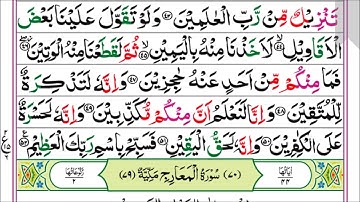 تَنْزِيْلٌ مِّنْ رَّبِّ الْعٰلَمِيْنَ ﴿۴۳﴾ وَلَوْ تَقَوَّلَ عَلَيْنَا بَعْضَ
الْاَقَاوِيْلِ ﴿۴۴﴾ لَاَخَذْنَا مِنْهُ بِالْيَمِيْنِ ﴿۴۵﴾ ثُمَّ لَقَطَعْنَا مِنْهُ الْوَتِيْنَ ﴿۴۶﴾
فَمَا مِنْكُمْ مِّنْ اَحَدٍ عَنْهُ حٰجِزِيْنَ ﴿۴۷﴾ وَاِنَّهٗ لَتَذْكِرَةٌ
لِّلْمُتَّقِيْنَ ﴿۴۸﴾ وَاِنَّا لَنَعْلَمُ اَنَّ مِنْكُمْ مُّكَذِّبِيْنَ ﴿۴۹﴾ وَاِنَّهٗ لَحَسْرَةٌ
عَلَى الْكٰفِرِيْنَ ﴿۵۰﴾ وَاِنَّهٗ لَحَقُّ الْيَقِيْنِ ﴿۵۱﴾ فَسَبِّحْ بِاسْمِ رَبِّكَ الْعَظِيْمِ ﴿۵۲﴾
اٰيَاتُهَا ۴۴ (۷۰) سُوْرَةُ الْمَعَارِجِ مَكِّيَّةٌ (۷۹) رُكُوْعَاتُهَا ۲